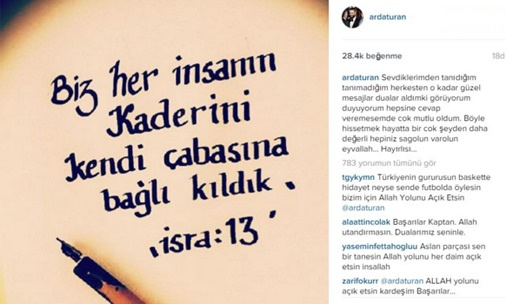 Biz her insanın
Kaderini
kendi çabasına
bağlı kıldık.
isra:13
ardaturan
28.4k beğenme
18d
ardaturan Sevdiklerimden tanıdığım
tanımadığım herkesten o kadar güzel
mesajlar dualar aldımki görüyorum
duyuyorum hepsine cevap
veremesemde cok mutlu oldum. Böyle
hissetmek hayatta bir cok şeyden daha
değerli hepiniz sagolun varolun
eyvallah... Hayırlısı...
783 yorumun tümünü gör
tgykymn Türkiyenin gururusun baskette
hidayet neyse sende futbolda öylesin
bizim için Allah Yolunu Açık Etsin
@ardaturan
alaattincolak Başarılar Kaptan. Allah
utandırmasın. Dualarımız seninle.
yaseminfettahogluu Aslan parçası sen
bir tanesin Allah yolunu her daim açık
etsin insallah
zarifokurr @ardaturan ALLAH yolunu
açık etsin kardeşim Başarılar...